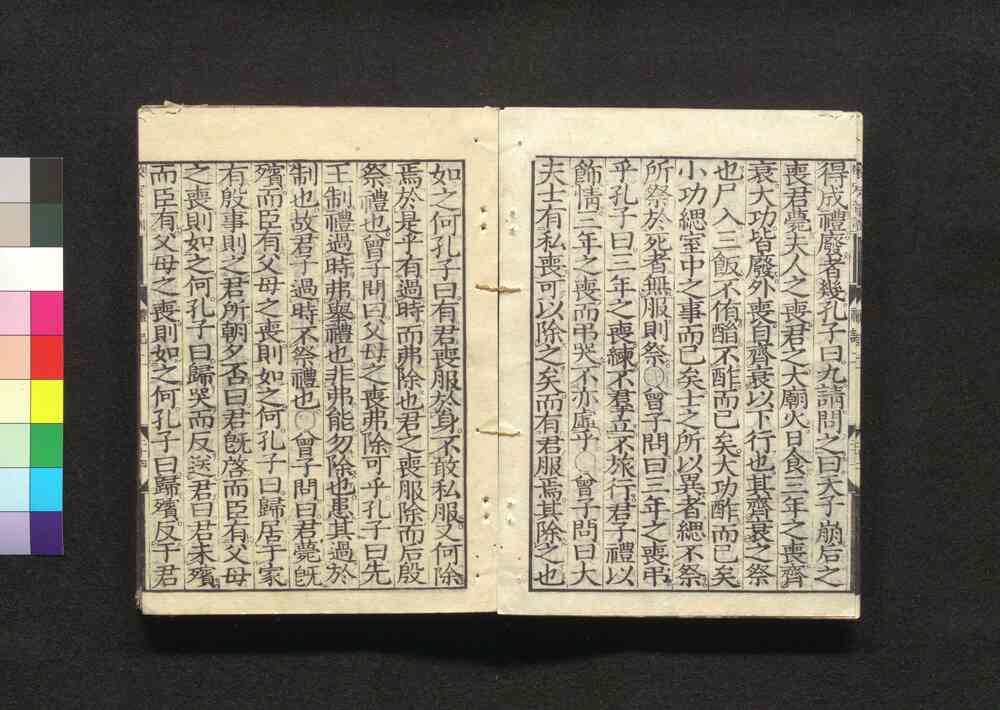 得成禮廢者幾孔子曰九請問之曰天子崩后之
喪君薨夫人之喪君之大廟火日食三年之喪齊
衰大功皆廢外喪自齊衰以下行也其齊衰之祭
也尸入三飯不侑酳不酢而已矣大功酢而已矣
小功緦室中之事而已矣士之所以異者緦不祭
所祭於死者無服則祭○曾子問曰三年之喪弔
乎孔子曰三年之喪練不羣立不旅行君子禮以
飾情三年之喪而弔哭不亦虛乎○曾子問曰大
夫士有私喪可以除之矣而有君服焉其除之也
如之何孔子曰有君喪服於身不敢私服又何除
焉於是乎有過時而弗除也君之喪服除而后殷
祭禮也曾子問曰父母之喪弗除可乎孔子曰先
王制禮過時弗舉禮也非弗能勿除也患其過於
制也故君子過時不祭禮也○曾子問曰君薨旣
殯而臣有父母之喪則如之何孔子曰歸居于家
有殷事則之君所朝夕否曰君旣啓而臣有父母
之喪則如之何孔子曰歸哭而反送君曰君未殯
而臣有父母之喪則如之何孔子曰歸殯反于君